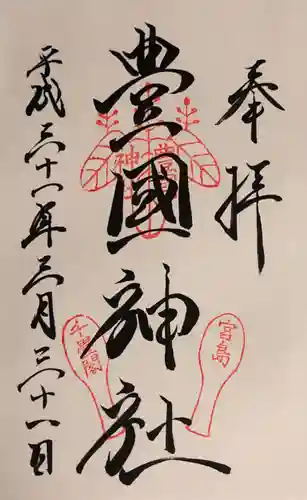 奉拝
豊國神社
平成三十一年三月三十一日
宮島
千畳閣